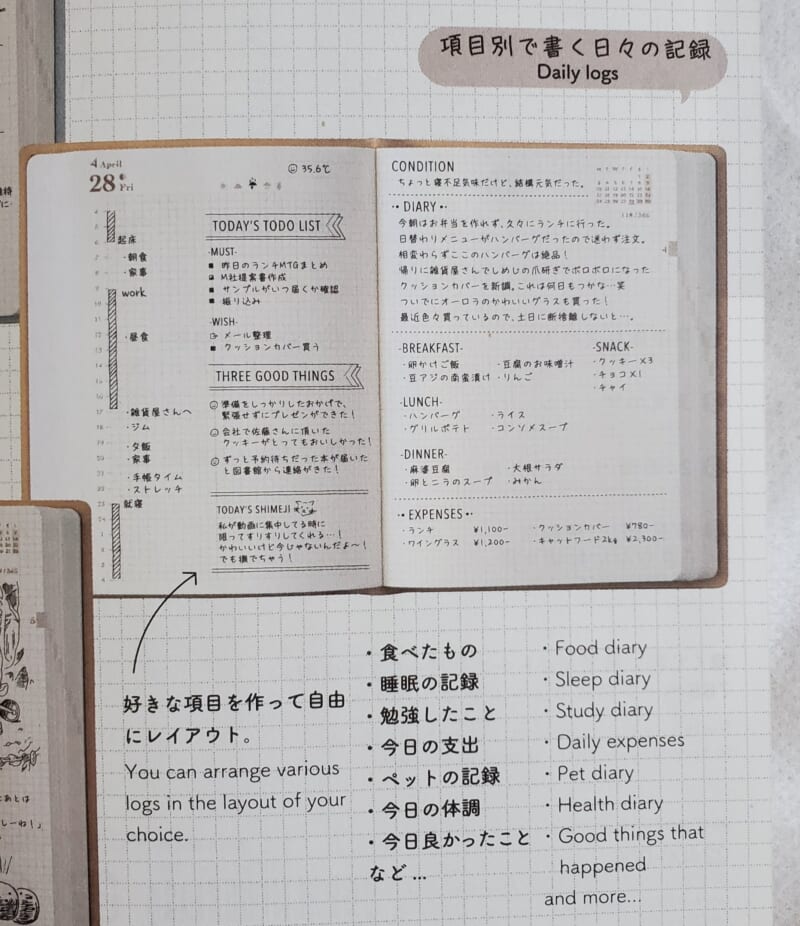 項目別で書く日々の記録
Daily logs
4 April
28 Fri
35.6℃
起床
・朝食
・家事
work
・昼食
・雑貨屋さんへ
・ジム
・夕飯
・家事
・手帳タイム
・ストレッチ
就寝
TODAY'S TODO LIST
-MUST-
昨日のランチMTGまとめ
M社提案書作成
サンプルがいつ届くか確認
振り込み
-WISH-
メール整理
クッションカバー買う
THREE GOOD THINGS
準備をしっかりしたおかげで、
緊張せずにプレゼンができた!
会社で佐藤さんに頂いた
クッキーがとってもおいしかった!
ずっと予約待ちだった本が届いた
と図書館から連絡がきた!
TODAY'S SHIMEJI
私が動画に集中してる時に
限ってすりすりしてくれる…!
かわいいけど今じゃないんだよ〜!
でも撫でちゃう!
CONDITION
ちょっと寝不足気味だけど、結構元気だった。
118/365
・DIARY・
今朝はお弁当を作れず、久々にランチに行った。
日替わりメニューがハンバーグだったので迷わず注文。
相変わらずここのハンバーグは絶品!
帰りに雑貨屋さんでしめじの爪研ぎでボロボロになった
クッションカバーを新調。これは何日もつかな…笑
ついでにオーロラのかわいいグラスも買った!
最近色々買っているので、土日に断捨離しないと…。
4
-BREAKFAST-
・卵かけご飯 ・豆腐のお味噌汁
・豆アジの南蛮漬け ・りんご
-SNACK-
・クッキー×3
・チョコ×1
・チャイ
-LUNCH-
・ハンバーグ ・ライス
・グリルポテト ・コンソメスープ
-DINNER-
・麻婆豆腐 ・大根サラダ
・卵とニラのスープ ・みかん
・EXPENSES・
・ランチ ¥1,100- ・クッションカバー ¥780-
・ワイングラス ¥1,200- ・キャットフード2kg ¥2,300-
好きな項目を作って自由
にレイアウト。
You can arrange various
logs in the layout of your
choice.
・食べたもの
・睡眠の記録
・勉強したこと
・今日の支出
・ペットの記録
・今日の体調
・今日良かったこと
など…
・Food diary
・Sleep diary
・Study diary
・Daily expenses
・Pet diary
・Health diary
・Good things that
happened
and more...